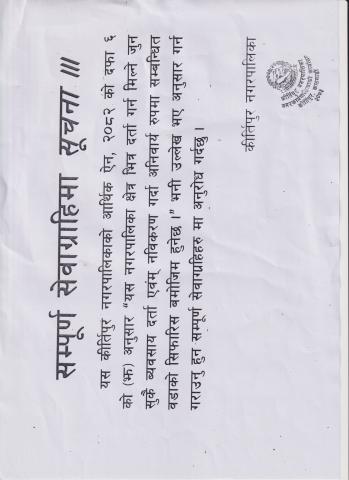 सम्पूर्ण सेवाग्राहिमा सूचना !!!
यस कीर्तिपुर नगरपालिकाको आर्थिक ऐन, २०८२ को दफा ६
को (झ) अनुसार "यस नगरपालिका क्षेत्र भित्र दर्ता गर्न मिल्ने जुन
सुकै ब्यवसाय दर्ता एवंम् नविकरण गर्दा अनिवार्य रुपमा सम्बन्धित
वडाको सिफारिस बमोजिम हुनेछ ।" भनी उल्लेख भए अनुसार गर्न
गराउनु हुन सम्पूर्ण सेवाग्रहिहरु मा अनुरोध गर्दछु ।
कीर्तिपुर नगरपालिका